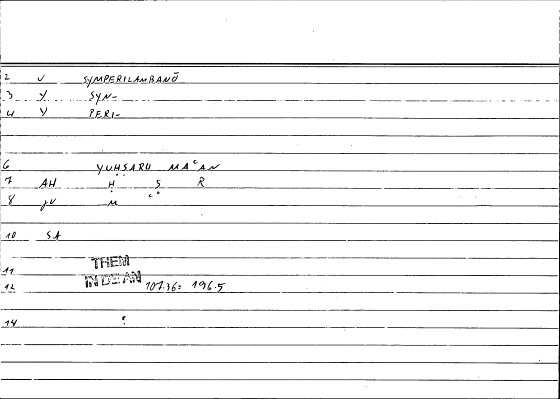 2 V SYMPERILAMBANŌ
3 Y SYN-
4 Y PERI-
6 YUḤṢARU MAʿAN
7 AH Ḥ Ṣ R
8 M ʿ
10 SA
11 THEM
12 IN DE AN 107.16: 196.5
14 :